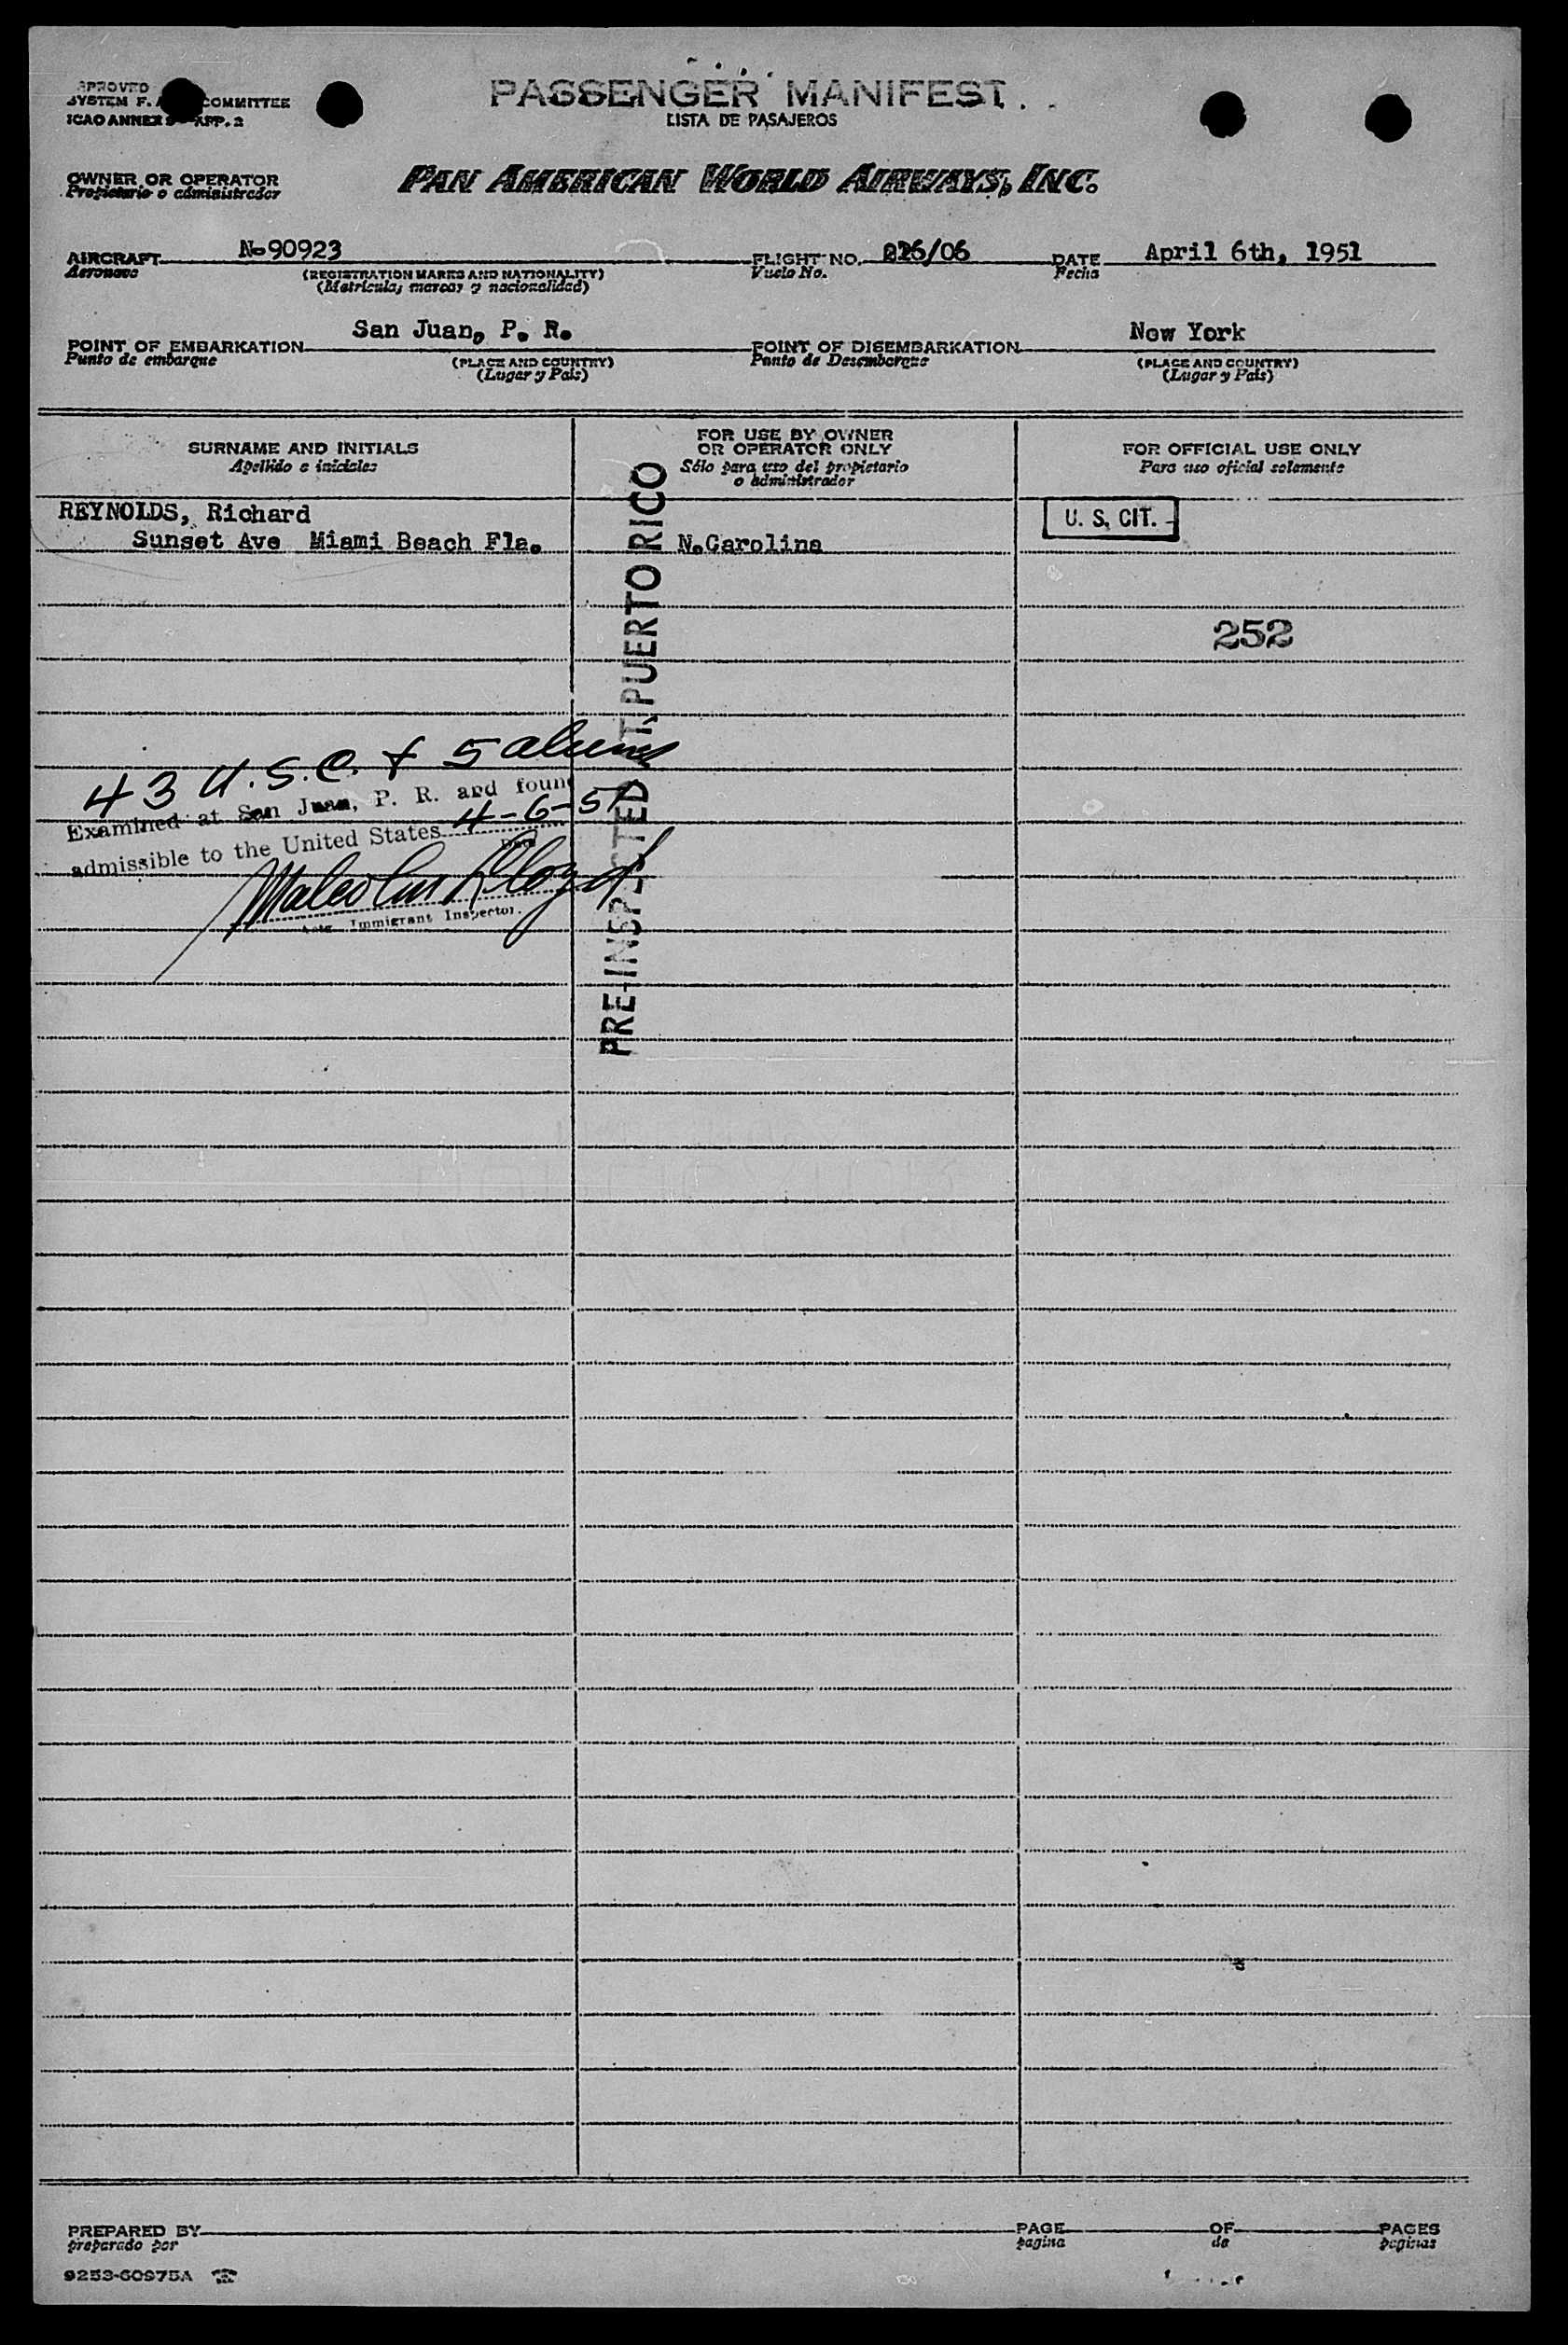 APPROVED
SYSTEM F. COMMITTEE
ICAO ANNEX 9 APP. 2
PASSENGER MANIFEST
LISTA DE PASAJEROS
OWNER OR OPERATOR
Propietario o administrador
PAN AMERICAN WORLD AIRWAYS, INC.
AIRCRAFT No90923 FLIGHT NO. 216/06 DATE April 6th, 1951
Aeronave (REGISTRATION MARKS AND NATIONALITY) Vuelo No. Fecha
(Matricula, marcas y nacionalidad)
San Juan, P. R. New York
POINT OF EMBARKATION POINT OF DISEMBARKATION
Punto de embarque (PLACE AND COUNTRY) Punto de Desembarque (PLACE AND COUNTRY)
(Lugar y Pais) (Lugar y Pais)
SURNAME AND INITIALS
Apellido e iniciales
FOR USE BY OWNER
OR OPERATOR ONLY
Sólo para uso del propietario
o administrador
FOR OFFICIAL USE ONLY
Para uso oficial solamente
REYNOLDS, Richard U. S. CIT.
Sunset Ave Miami Beach Fla. N.Carolina
252
PRE-INSPECTED AT PUERTO RICO
43 U.S.C. + 5 aliens
Examined at San Juan, P. R. and found
admissible to the United States 4-6-51
Date
Malcolm Lloyd
Actg. Immigrant Inspector.
PREPARED BY PAGE OF PAGES
preparado por pagina de paginas
9253-60975A